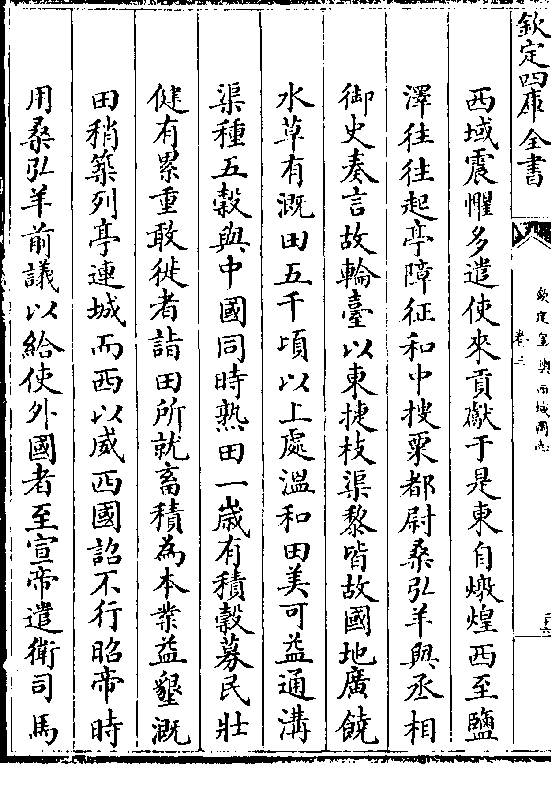 欽定四庫全書
欽定皇輿西域圖志
卷三
西域震懼多遣使來貢獻于是東自燉煌西至鹽
澤往往起亭障征和中搜粟都尉桑弘羊與丞相
御史奏言故輪臺以東捷枝渠黎皆故國地廣饒
水草有溉田五千頃以上處溫和田美可益通溝
渠種五穀與中國同時熟田一歲有積穀募民壯
健有累重敢徙者詣田所就畜積為本業益墾溉
田稍築列亭連城而西以威西國詔不行昭帝時
用桑弘羊前議以給使外國者至宣帝遣衛司馬